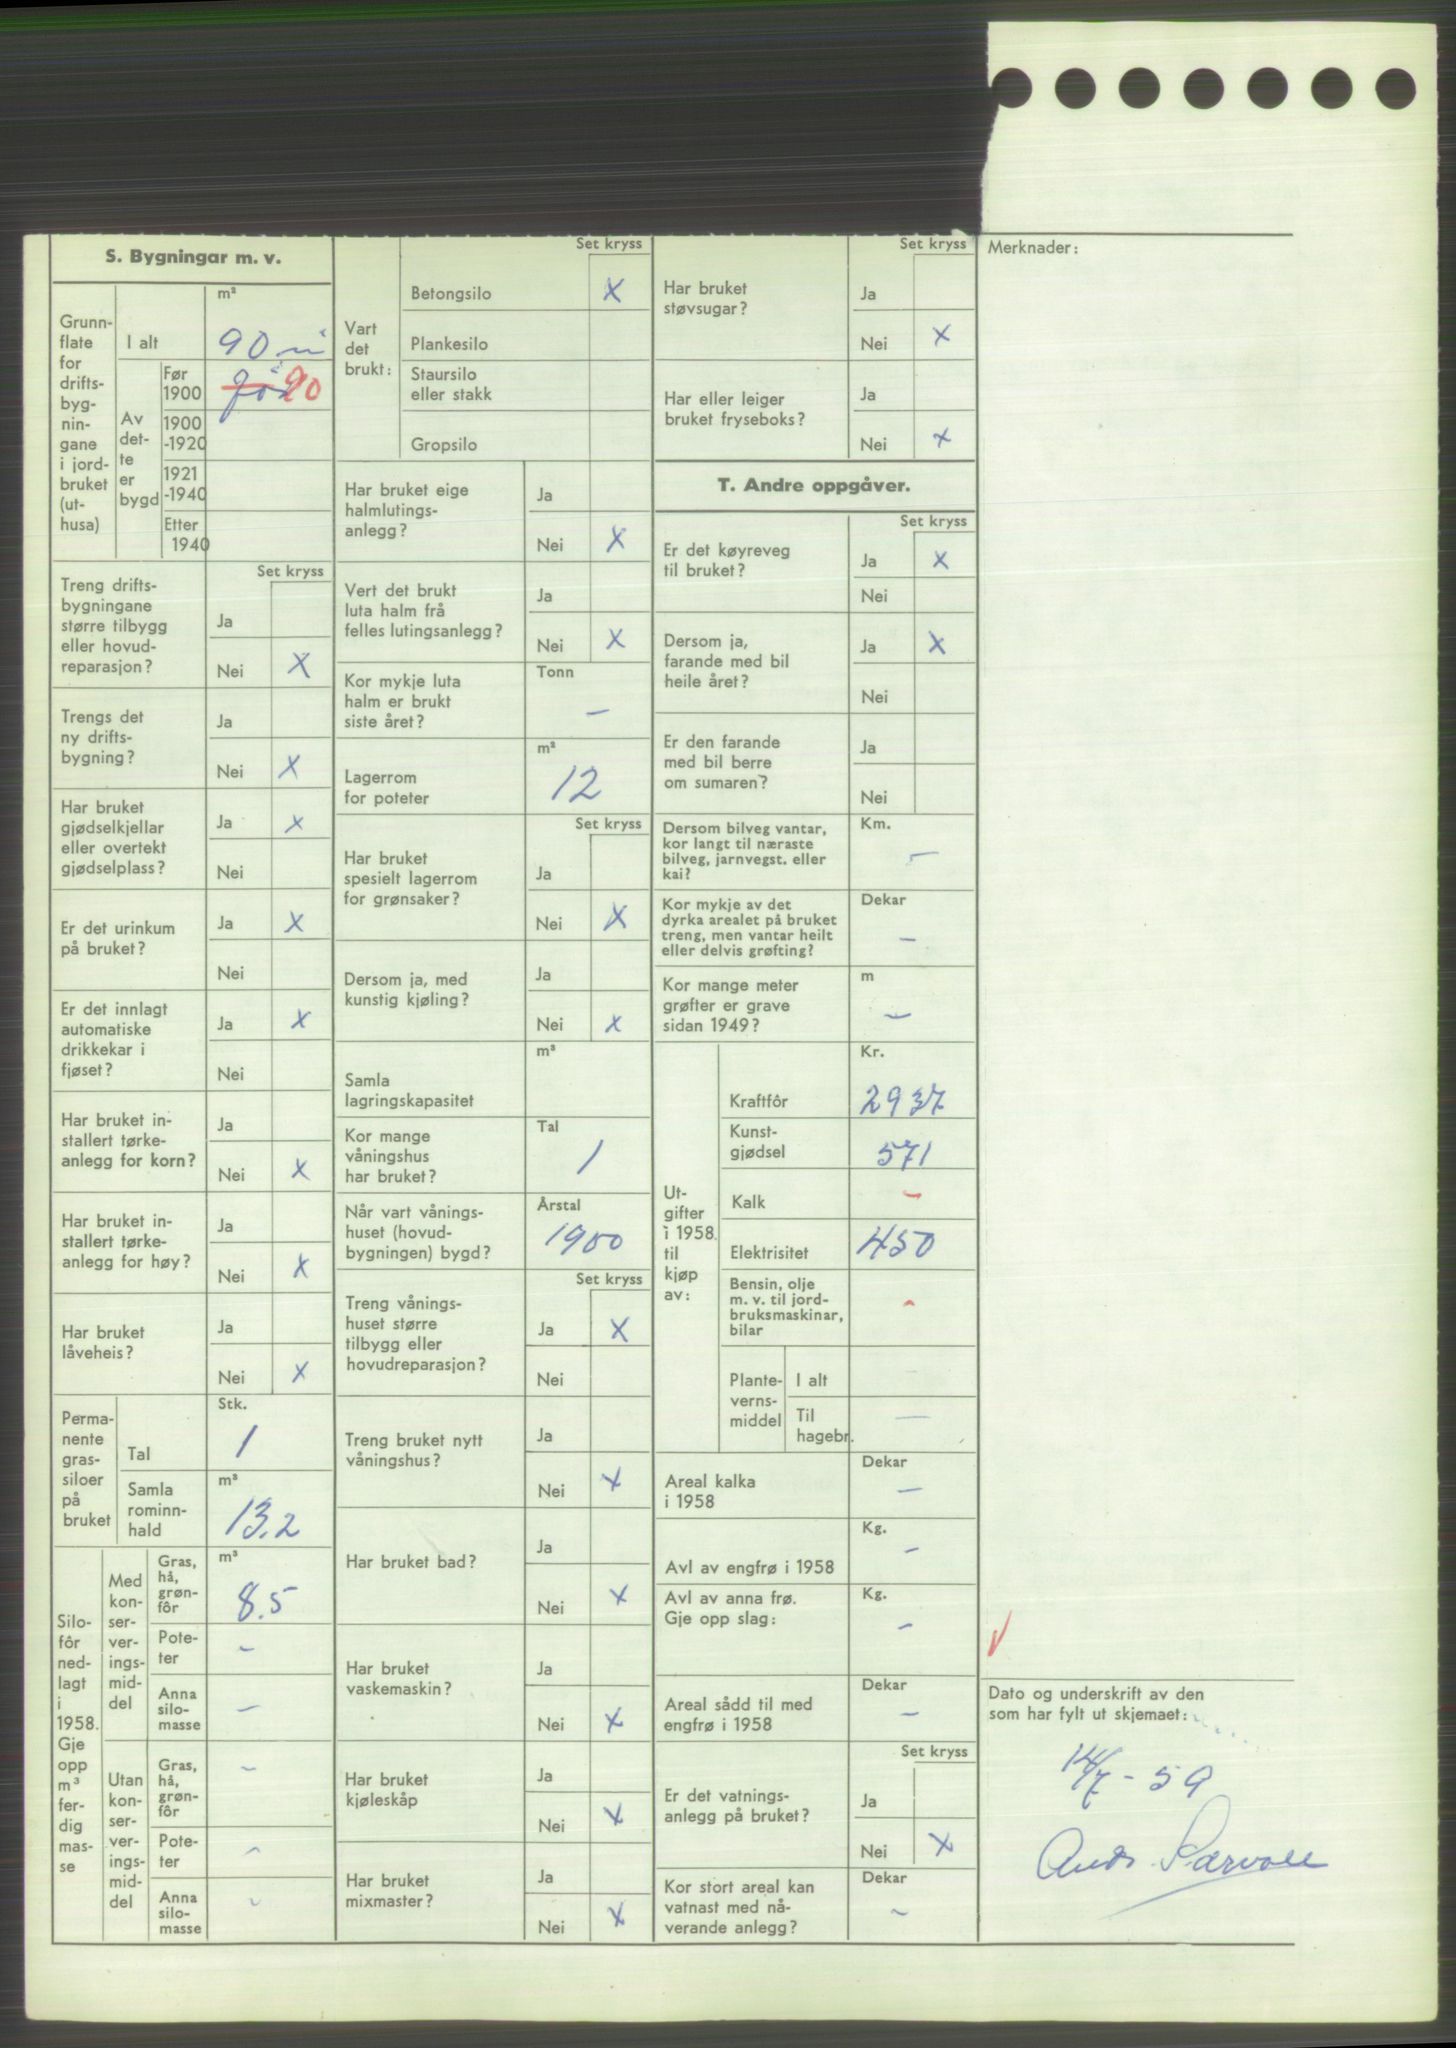 S. Bygningar m. v.
Grunn-
flate
for
drifts-
byg-
nin-
gane
i jord-
bruket
(ut-
husa)
I alt
m²
90 m
Av
det-
te
er
bygd
Før
1900
90
1900
-1920
1921
-1940
Etter
1940
Set kryss
Treng drifts-
bygningane
større tilbygg
eller hovud-
reparasjon?
Ja
Nei X
Trengs det
ny drifts-
bygning?
Ja
Nei X
Har bruket
gjødselkjellar
eller overtekt
gjødselplass?
Ja X
Nei
Er det urinkum
på bruket?
Ja X
Nei
Er det innlagt
automatiske
drikkekar i
fjøset?
Ja X
Nei
Har bruket in-
stallert tørke-
anlegg for korn?
Ja
Nei X
Har bruket in-
stallert tørke-
anlegg for høy?
Ja
Nei X
Har bruket
låveheis?
Ja
Nei X
Perma-
nente
gras-
siloer
på
bruket
Tal
Stk.
1
Samla
rominn-
hald
m³
13.2
Silo-
fôr
ned-
lagt
i
1958.
Gje
opp
m³
fer-
dig
mas-
se
Med
kon-
ser-
ver-
ings-
mid-
del
Gras,
hå,
grøn-
fôr
m³
8.5
Pote-
ter
–
Anna
silo-
masse
–
Utan
kon-
ser-
ver-
ings-
mid-
del
Gras,
hå,
grøn-
fôr
–
Pote-
ter
–
Anna
silo-
masse
–
Vart
det
brukt:
Set kryss
Betongsilo X
Plankesilo
Staursilo
eller stakk
Gropsilo
Har bruket eige
halmlutings-
anlegg?
Ja
Nei X
Vert det brukt
luta halm frå
felles lutingsanlegg?
Ja
Nei X
Kor mykje luta
halm er brukt
siste året?
Tonn
–
Lagerrom
for poteter
m²
12
Set kryss
Har bruket
spesielt lagerrom
for grønsaker?
Ja
Nei X
Dersom ja, med
kunstig kjøling?
Ja
Nei X
Samla
lagringskapasitet
m³
Kor mange
våningshus
har bruket?
Tal
1
Når vart vånings-
huset (hovud-
bygningen) bygd?
Årstal
1900
Set kryss
Treng vånings-
huset større
tilbygg eller
hovudreparasjon?
Ja X
Nei
Treng bruket nytt
våningshus?
Ja
Nei X
Har bruket bad?
Ja
Nei X
Har bruket
vaskemaskin?
Ja
Nei X
Har bruket
kjøleskåp
Ja
Nei X
Har bruket
mixmaster?
Ja
Nei X
Set kryss
Har bruket
støvsugar?
Ja
Nei X
Har eller leiger
bruket fryseboks?
Ja
Nei X
T. Andre oppgåver.
Set kryss
Er det køyreveg
til bruket?
Ja X
Nei
Dersom ja,
farande med bil
heile året?
Ja X
Nei
Er den farande
med bil berre
om sumaren?
Ja
Nei
Dersom bilveg vantar,
kor langt til næraste
bilveg, jarnvegst. eller
kai?
Km.
–
Kor mykje av det
dyrka arealet på bruket
treng, men vantar heilt
eller delvis grøfting?
Dekar
–
Kor mange meter
grøfter er grave
sidan 1949?
m
–
Ut-
gifter
i 1958
til
kjøp
av:
Kr.
Kraftfôr 2937
Kunst-
gjødsel 571
Kalk –
Elektrisitet 450
Bensin, olje
m. v. til jord-
bruksmaskinar,
bilar
–
Plante-
verns-
middel
I alt –
Til
hagebr. –
Areal kalka
i 1958
Dekar
–
Avl av engfrø i 1958
Kg.
–
Avl av anna frø.
Gje opp slag:
Kg.
–
Areal sådd til med
engfrø i 1958
Dekar
–
Set kryss
Er det vatnings-
anlegg på bruket?
Ja
Nei X
Kor stort areal kan
vatnast med nå-
verande anlegg?
Dekar
–
Merknader:
Dato og underskrift av den
som har fylt ut skjemaet:
14/7 - 59